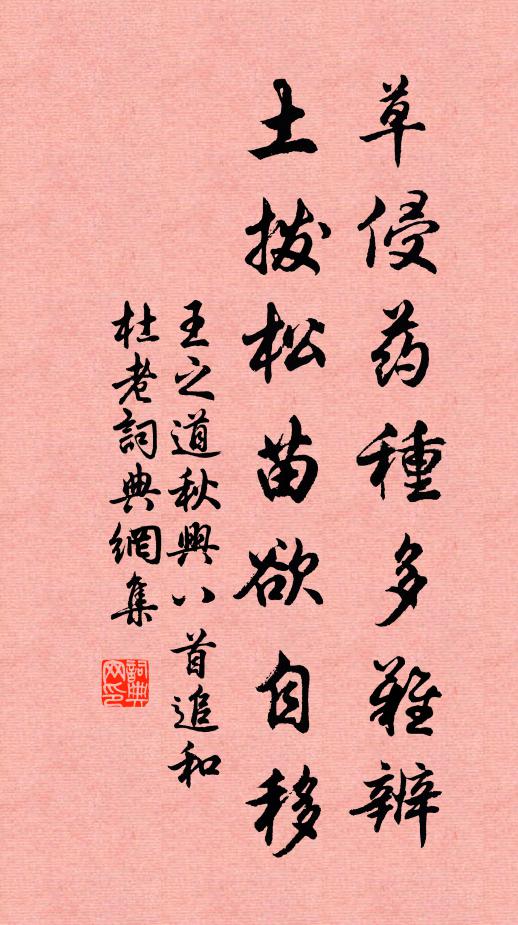 草侵药種多難辨
土拨松苗欲自移
王之道秋興八首追和
杜老詞典網集
詞典
网印